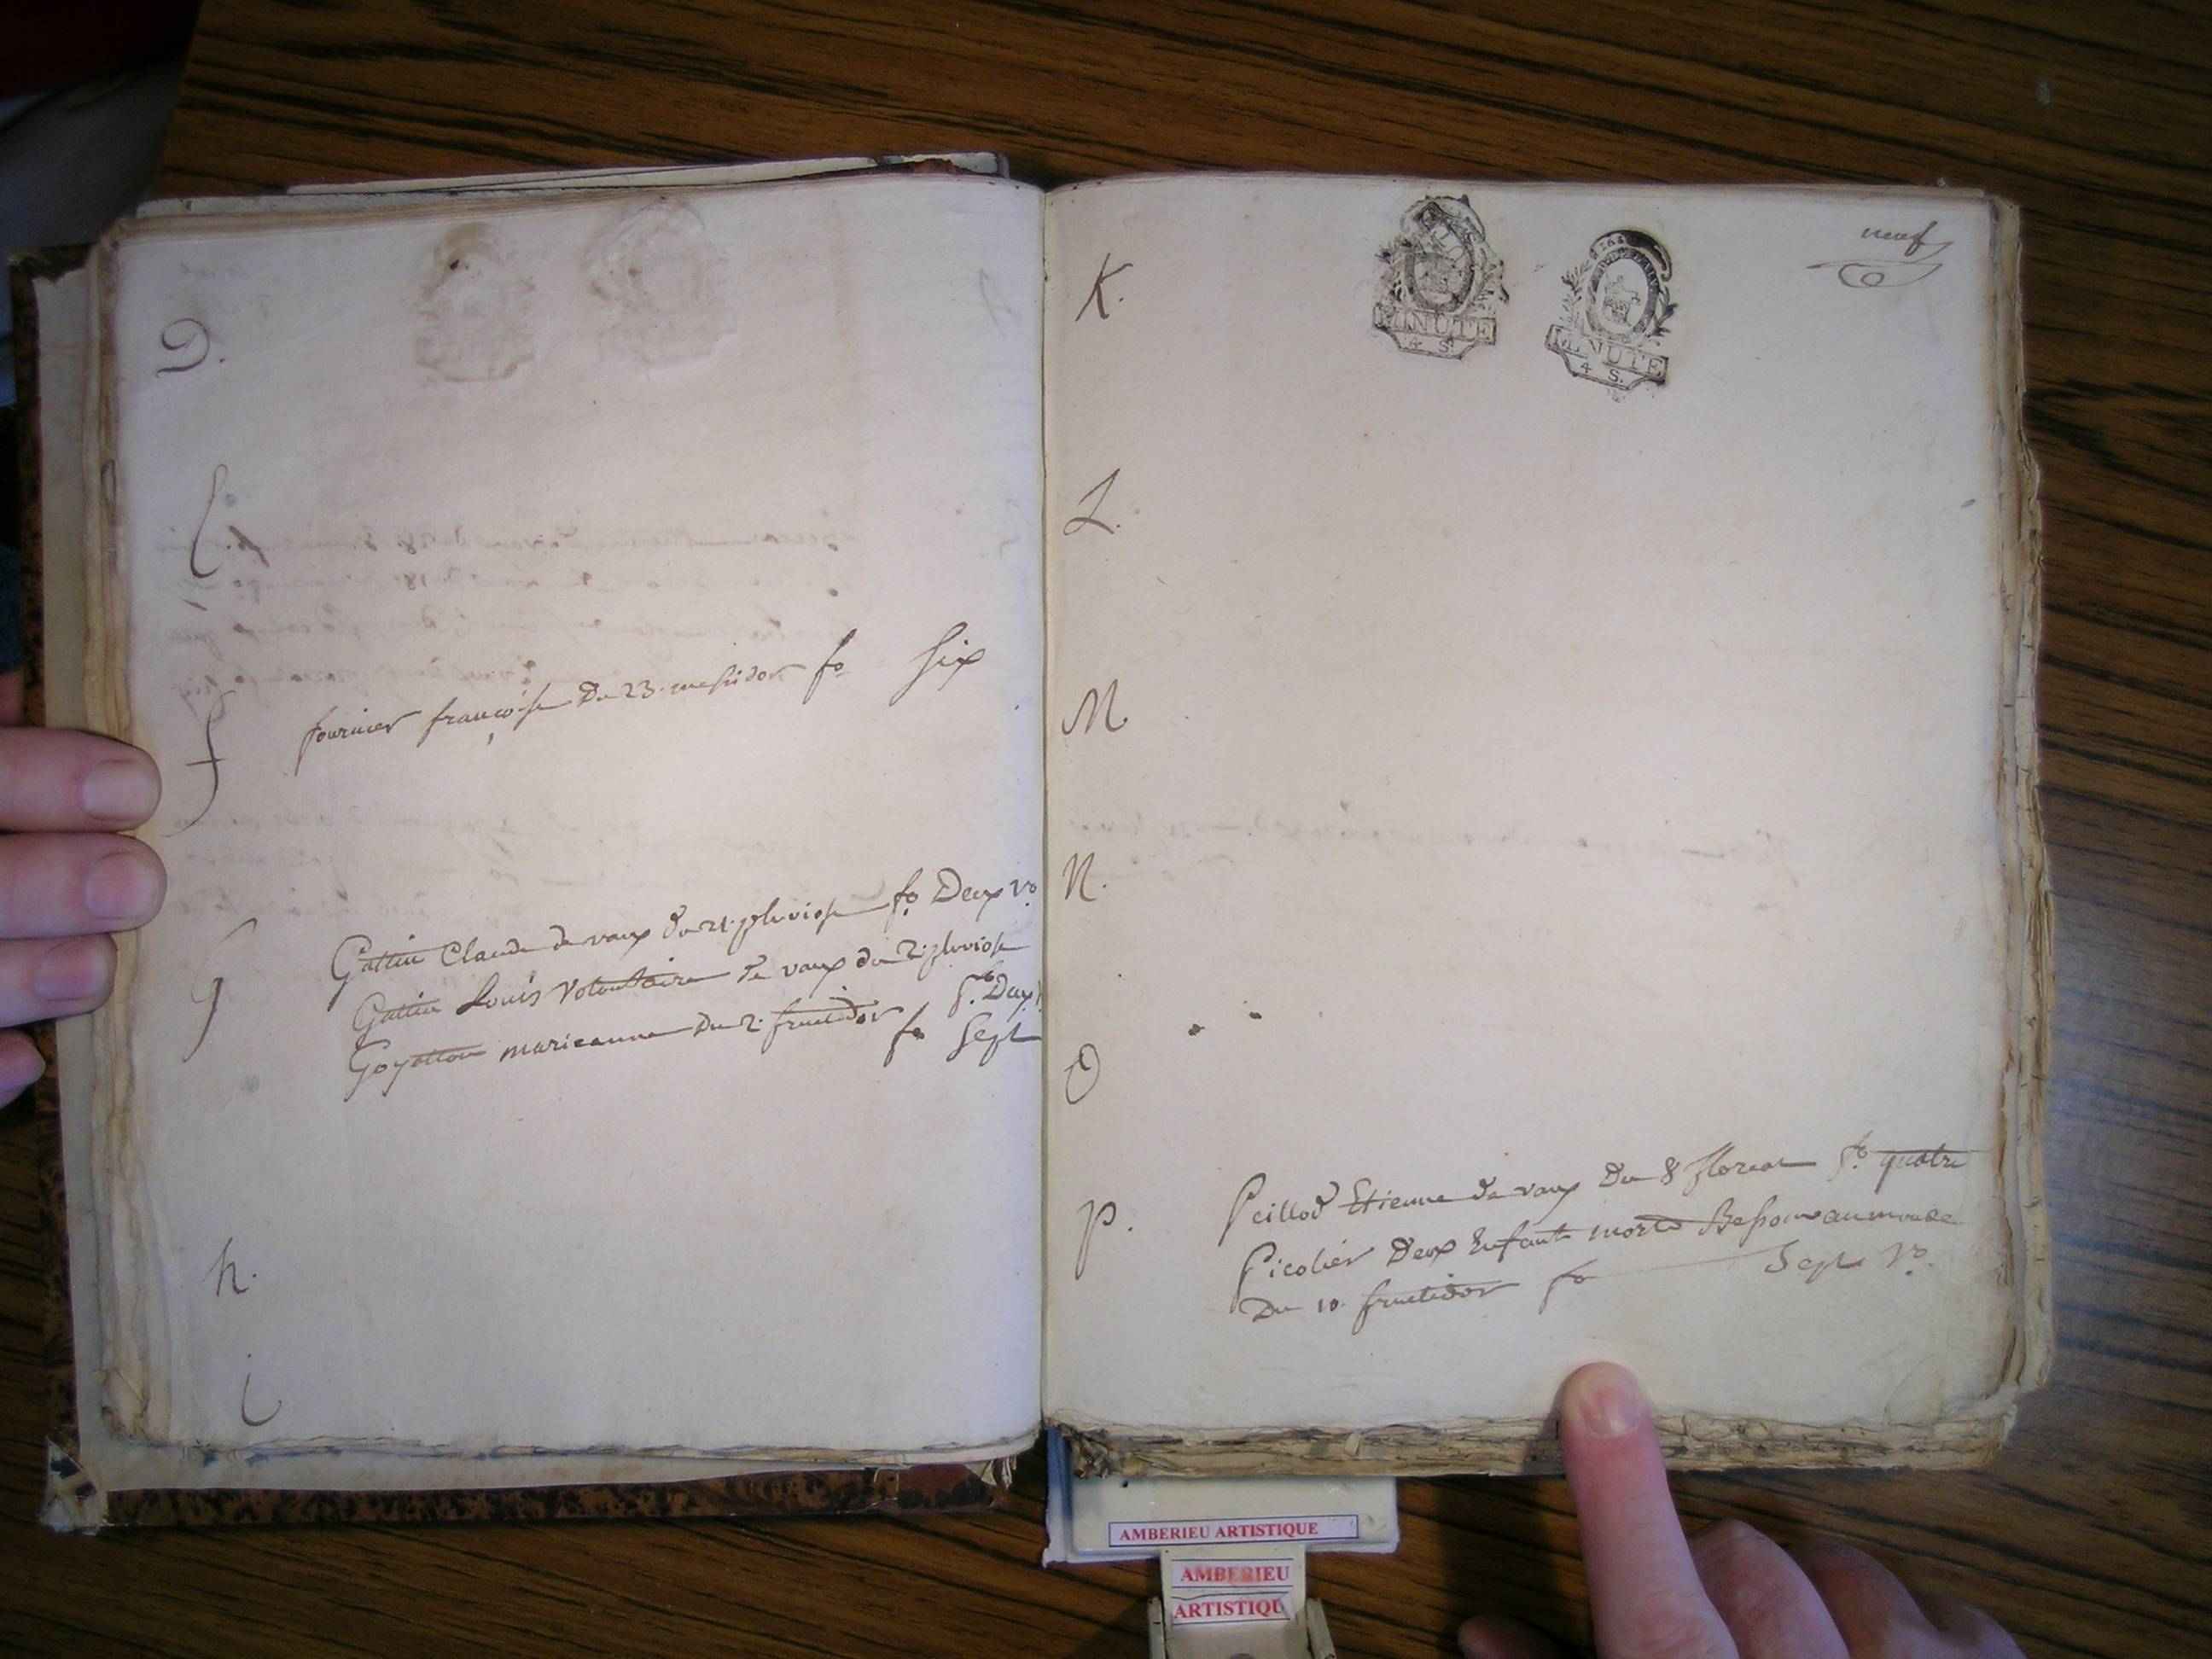 D.
E.
f
fournier françoise Du 23. messidor fo six
G
Gattin Claude de vaux du 21. pluviose fo Deux Vo
Gattin Louis Volontaire de vaux du 2. pluviose
fo Deux V
Goyatton marieanne Du 2. fructidor fo Sept
h.
i
neuf
K.
MINUTE
4 S.
MINUTE
4 S.
L.
M.
N.
O
P.
Peillod Etienne de vaux Du 8 floreal fo quatre
Picolier Deux Enfants morts au monde
Du 10. fructidor fo Sept Vo.
AMBERIEU ARTISTIQUE
AMBERIEU
ARTISTIQU